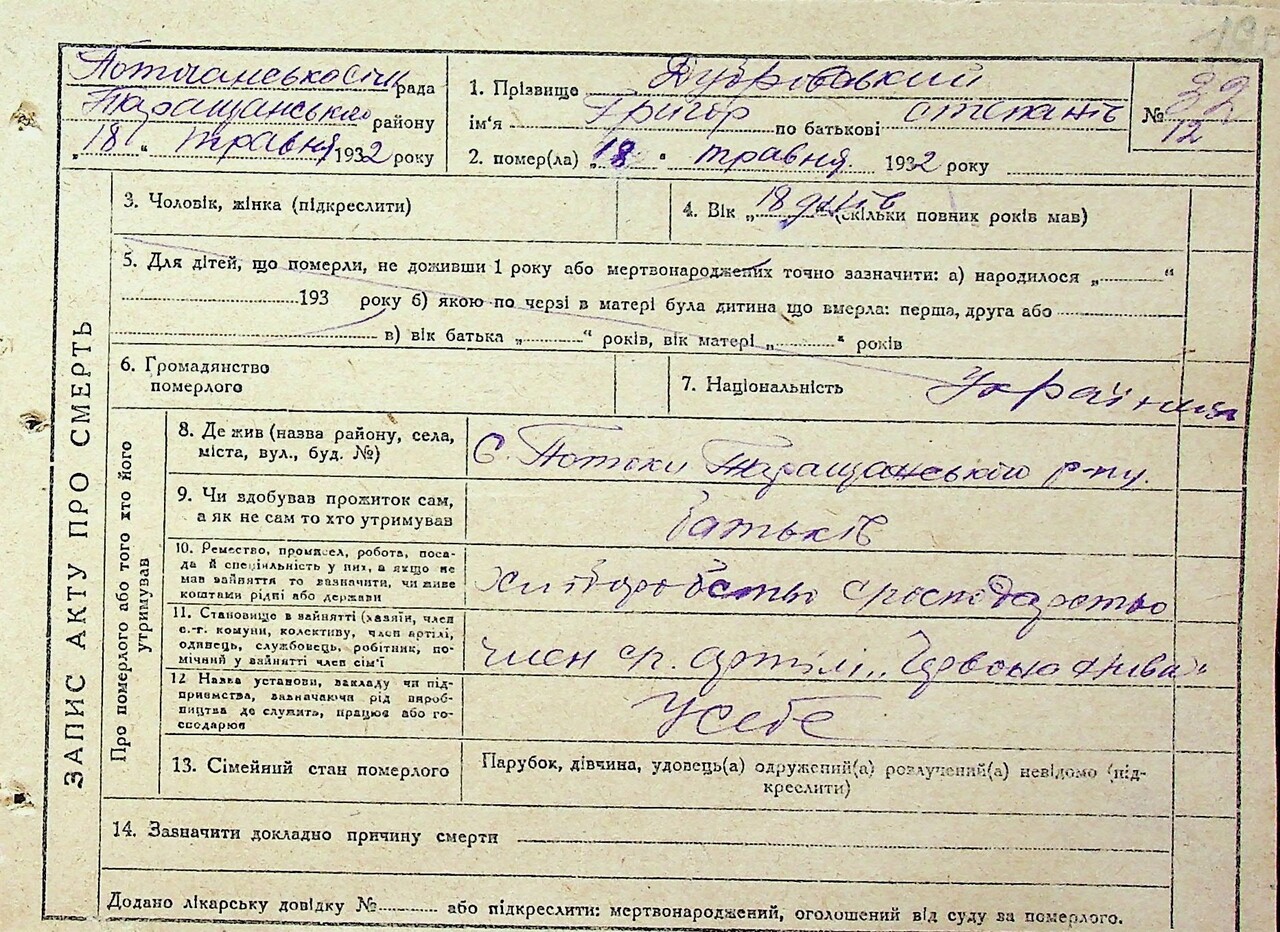 Потічанська сільрада
Таращанського району
„18“ травня 1932 року
1. Прізвище Дубровський
ім'я Григор по батькові степанів
2. помер(ла) „18“ травня 1932 року
№ 32
12
3. Чоловік, жінка (підкреслити)
4. Вік „18 днів“ (скільки повних років мав)
5. Для дітей, що померли, не доживши 1 року або мертвонароджених точно зазначити: а) народилося „.........“
193 року б) якою по черзі в матері була дитина що вмерла: перша, друга або
в) вік батька „.........“ років, вік матері „.........“ років
6. Громадянство
померлого
7. Національність Українця
ЗАПИС АКТУ ПРО СМЕРТЬ
Про померлого або того хто його
утримував
8. Де жив (назва району, села,
міста, вул., буд. №)
С. Потоки Таращанського р-ну.
9. Чи здобував прожиток сам,
а як не сам то хто утримував
батьків
10. Ремество, промисел, робота, поса-
да й спеціяльність у них, а якщо не
мав зайняття то зазначити, чи живе
коштами рідні або держави
11. Становище в зайнятті (хазяїн, член
с.-г. комуни, колективу, член артілі,
одинець, службовець, робітник, по-
мічний у зайнятті член сім'ї
член ср. артілі „Червона Нива“
12 Назва установи, закладу чи під-
приємства, зазначаючи рід вироб-
ництва де служить, працює або го-
сподарює
У себе
13. Сімейний стан померлого
Парубок, дівчина, удовець(а) одружений(а) розлучений(а) невідомо (під-
креслити)
14. Зазначити докладно причину смерти
Додано лікарську довідку №......... або підкреслити: мертвонароджений, оголошений від суду за померлого.